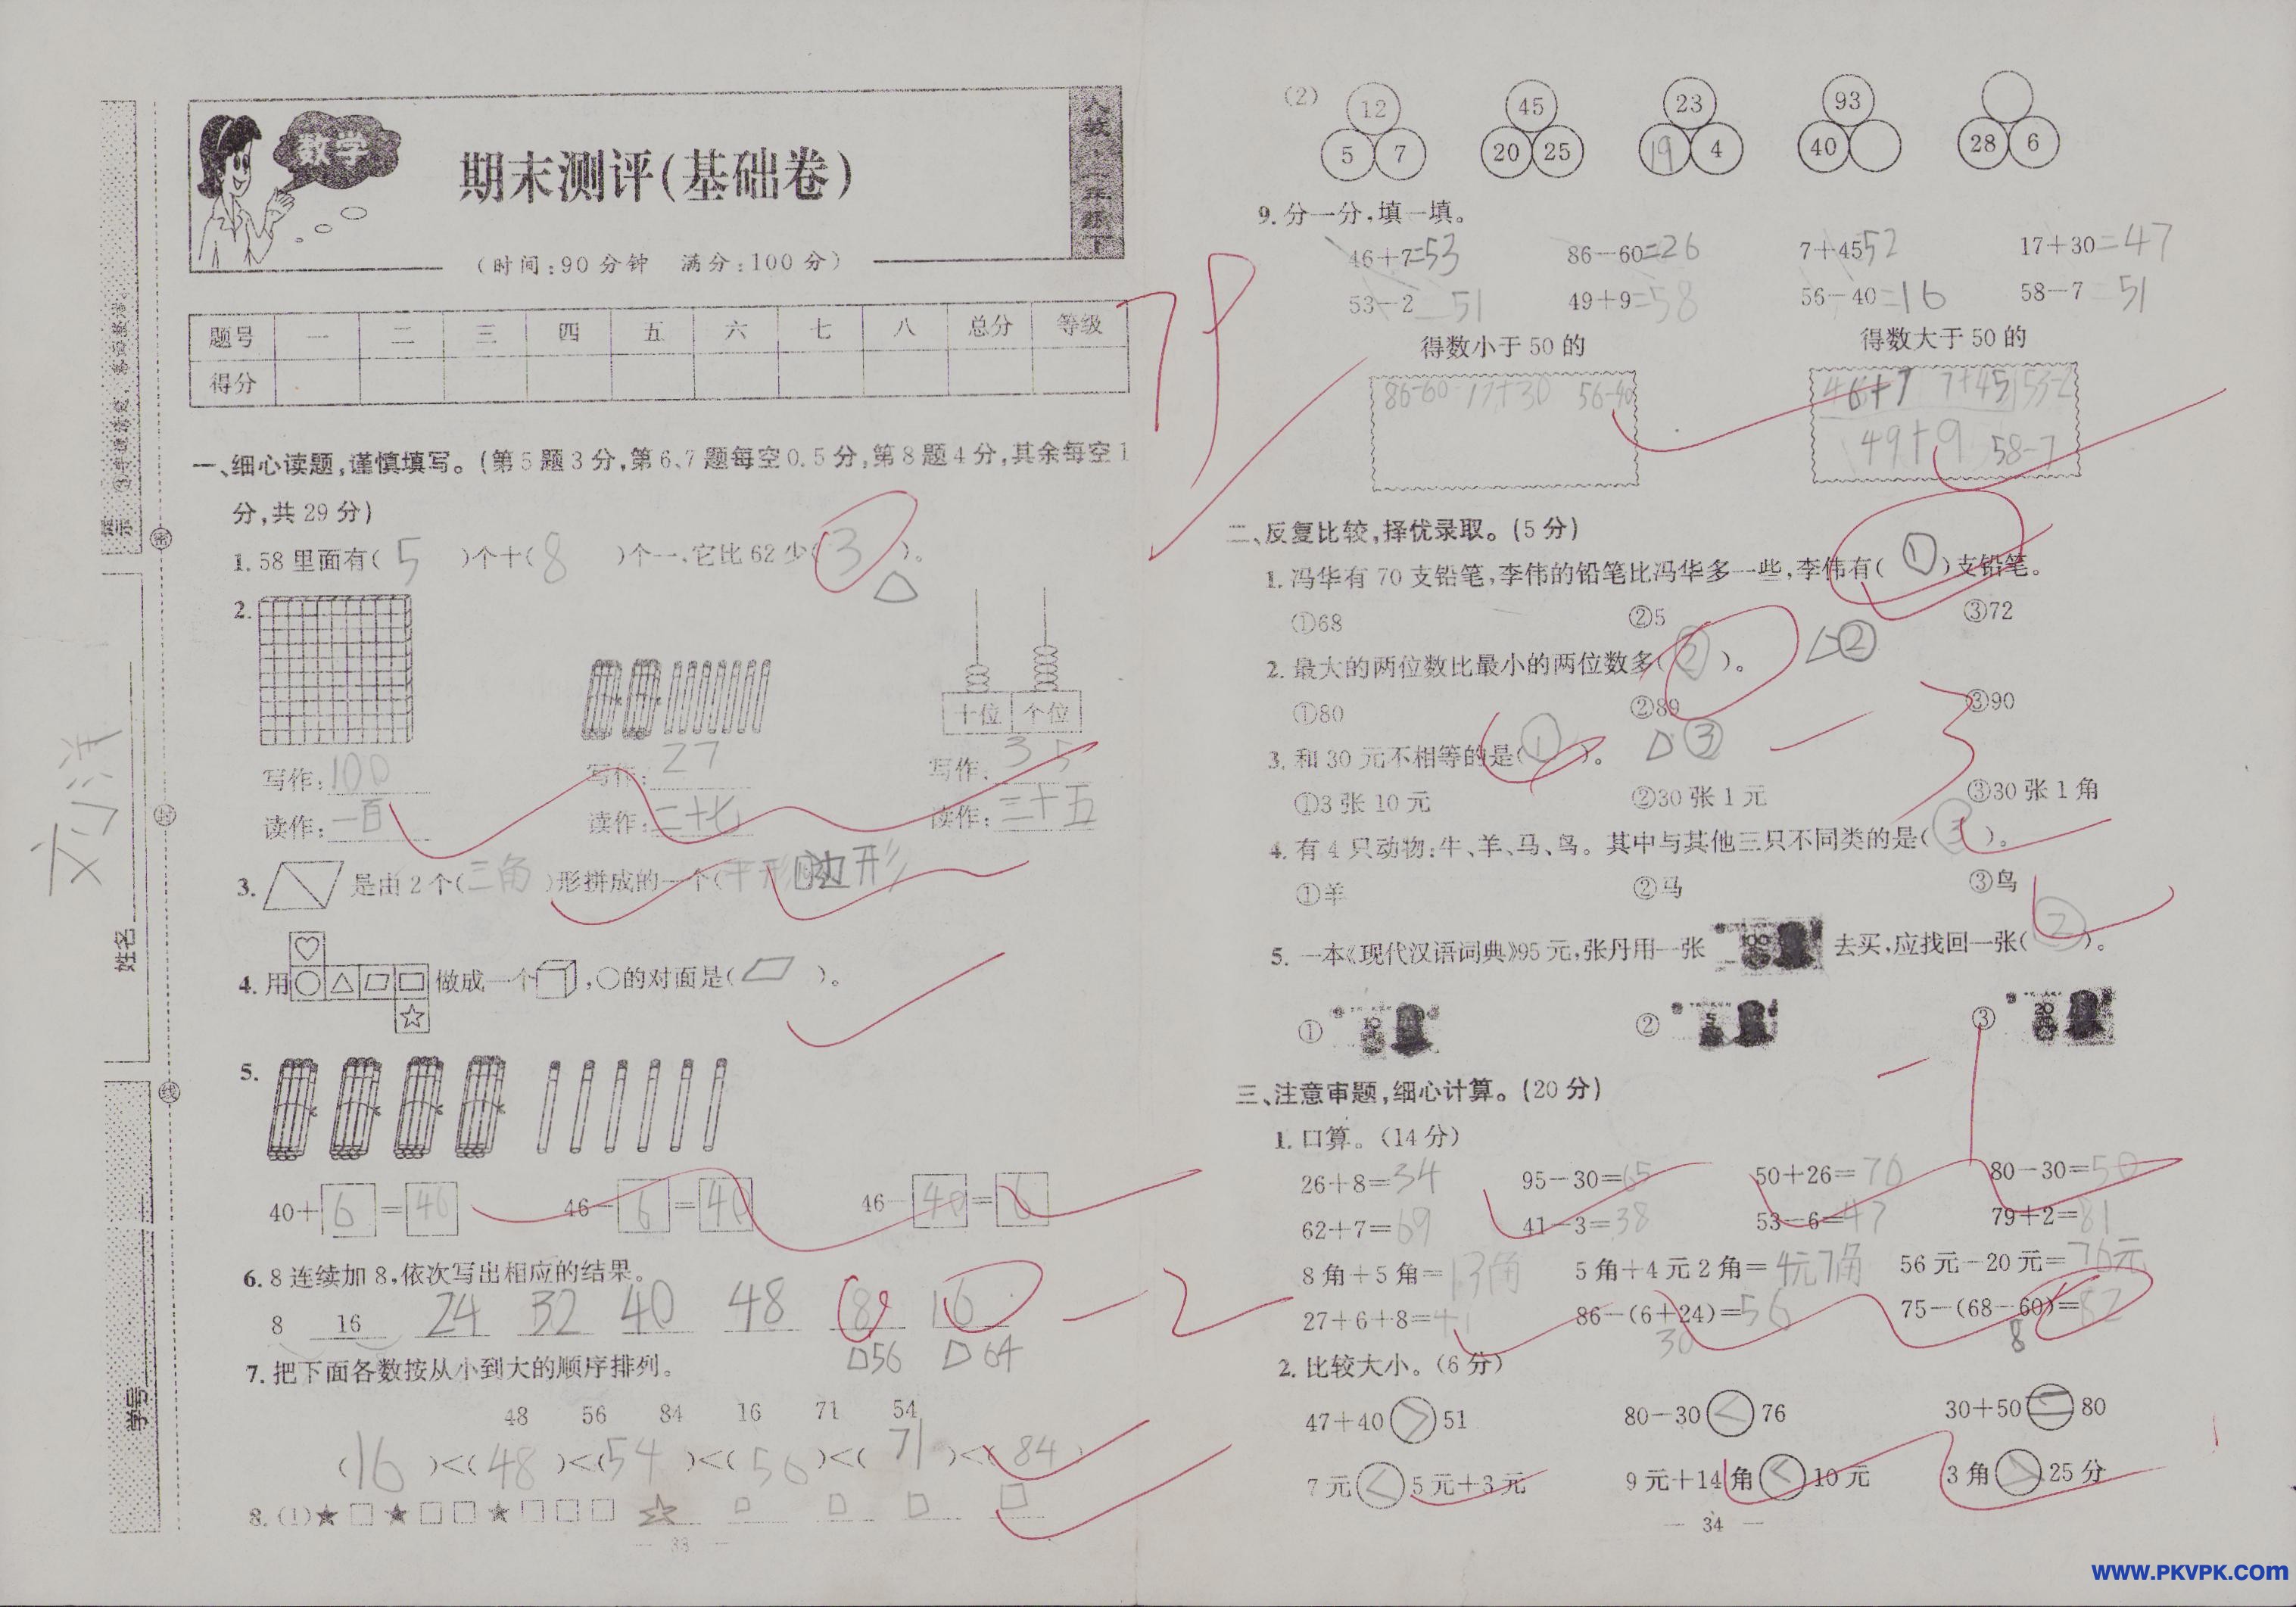 数学
期末测评(基础卷)
(时间:90分钟 满分:100分)
人教·一年级下
79
题号 一 二 三 四 五 六 七 八 总分 等级
得分
一、细心读题,谨慎填写。(第5题3分,第6、7题每空0.5分,第8题4分,其余每空1
分,共29分)
1. 58里面有( 5 )个十( 8 )个一、它比62少( 3 )。
2.
十位 个位
写作: 100 写作: 27 写作: 35
读作: 一百 读作: 二十七 读作: 三十五
3. 是由2个( 三角 )形拼成的一个( 平形四边形
4. 用♡○△▱▭☆做成一个 ,○的对面是( ▱ )。
5.
40+6=46 46-6=40 46-40=6
6. 8连续加8,依次写出相应的结果。
8 16 24 32 40 48 8 16
56 64
-2
7. 把下面各数按从小到大的顺序排列。
48 56 84 16 71 54
(16)<(48)<(54)<(56)<(71)<(84)
8. (1)★□★□□★□□□ ☆ □ □ □ □
— 33 —
姓名
学号
密
封
线
(2)
12 45 23 93
5 7 20 25 19 4 40 28 6
9. 分一分,填一填。
46+7=53 86-60=26 7+45 52 17+30=47
53-2 51 49+9=58 56-40=16 58-7 51
得数小于50的 得数大于50的
86-60 17+30 56-40 46+7 7+45 53-2
49+9 58-7
二、反复比较,择优录取。(5分)
1. 冯华有70支铅笔,李伟的铅笔比冯华多一些,李伟有( ① )支铅笔。
①68 ②5 ③72
2. 最大的两位数比最小的两位数多( ② )。 ②
①80 ②89 ③90
3. 和30元不相等的是( ① )。 ③
-3
①3张10元 ②30张1元 ③30张1角
4. 有4只动物:牛、羊、马、鸟。其中与其他三只不同类的是( ③ )。
①羊 ②马 ③鸟
5. 一本《现代汉语词典》95元,张丹用一张 100 去买,应找回一张( ② )。
① 10 ② 5 ③ 20
三、注意审题,细心计算。(20分)
-1
1. 口算。(14分)
26+8=34 95-30=65 50+26=76 80-30=50
62+7=69 41-3=38 53-6=47 79+2=81
8角+5角=13角 5角+4元2角=4元7角 56元-20元=76元
27+6+8=41 86-(6+24)=56 75-(68-60)=82
30 8
2. 比较大小。(6分)
47+40>51 80-30<76 30+50=80
7元<5元+3元 9元+14角<10元 3角>25分
— 34 —
www.PKVPK.com